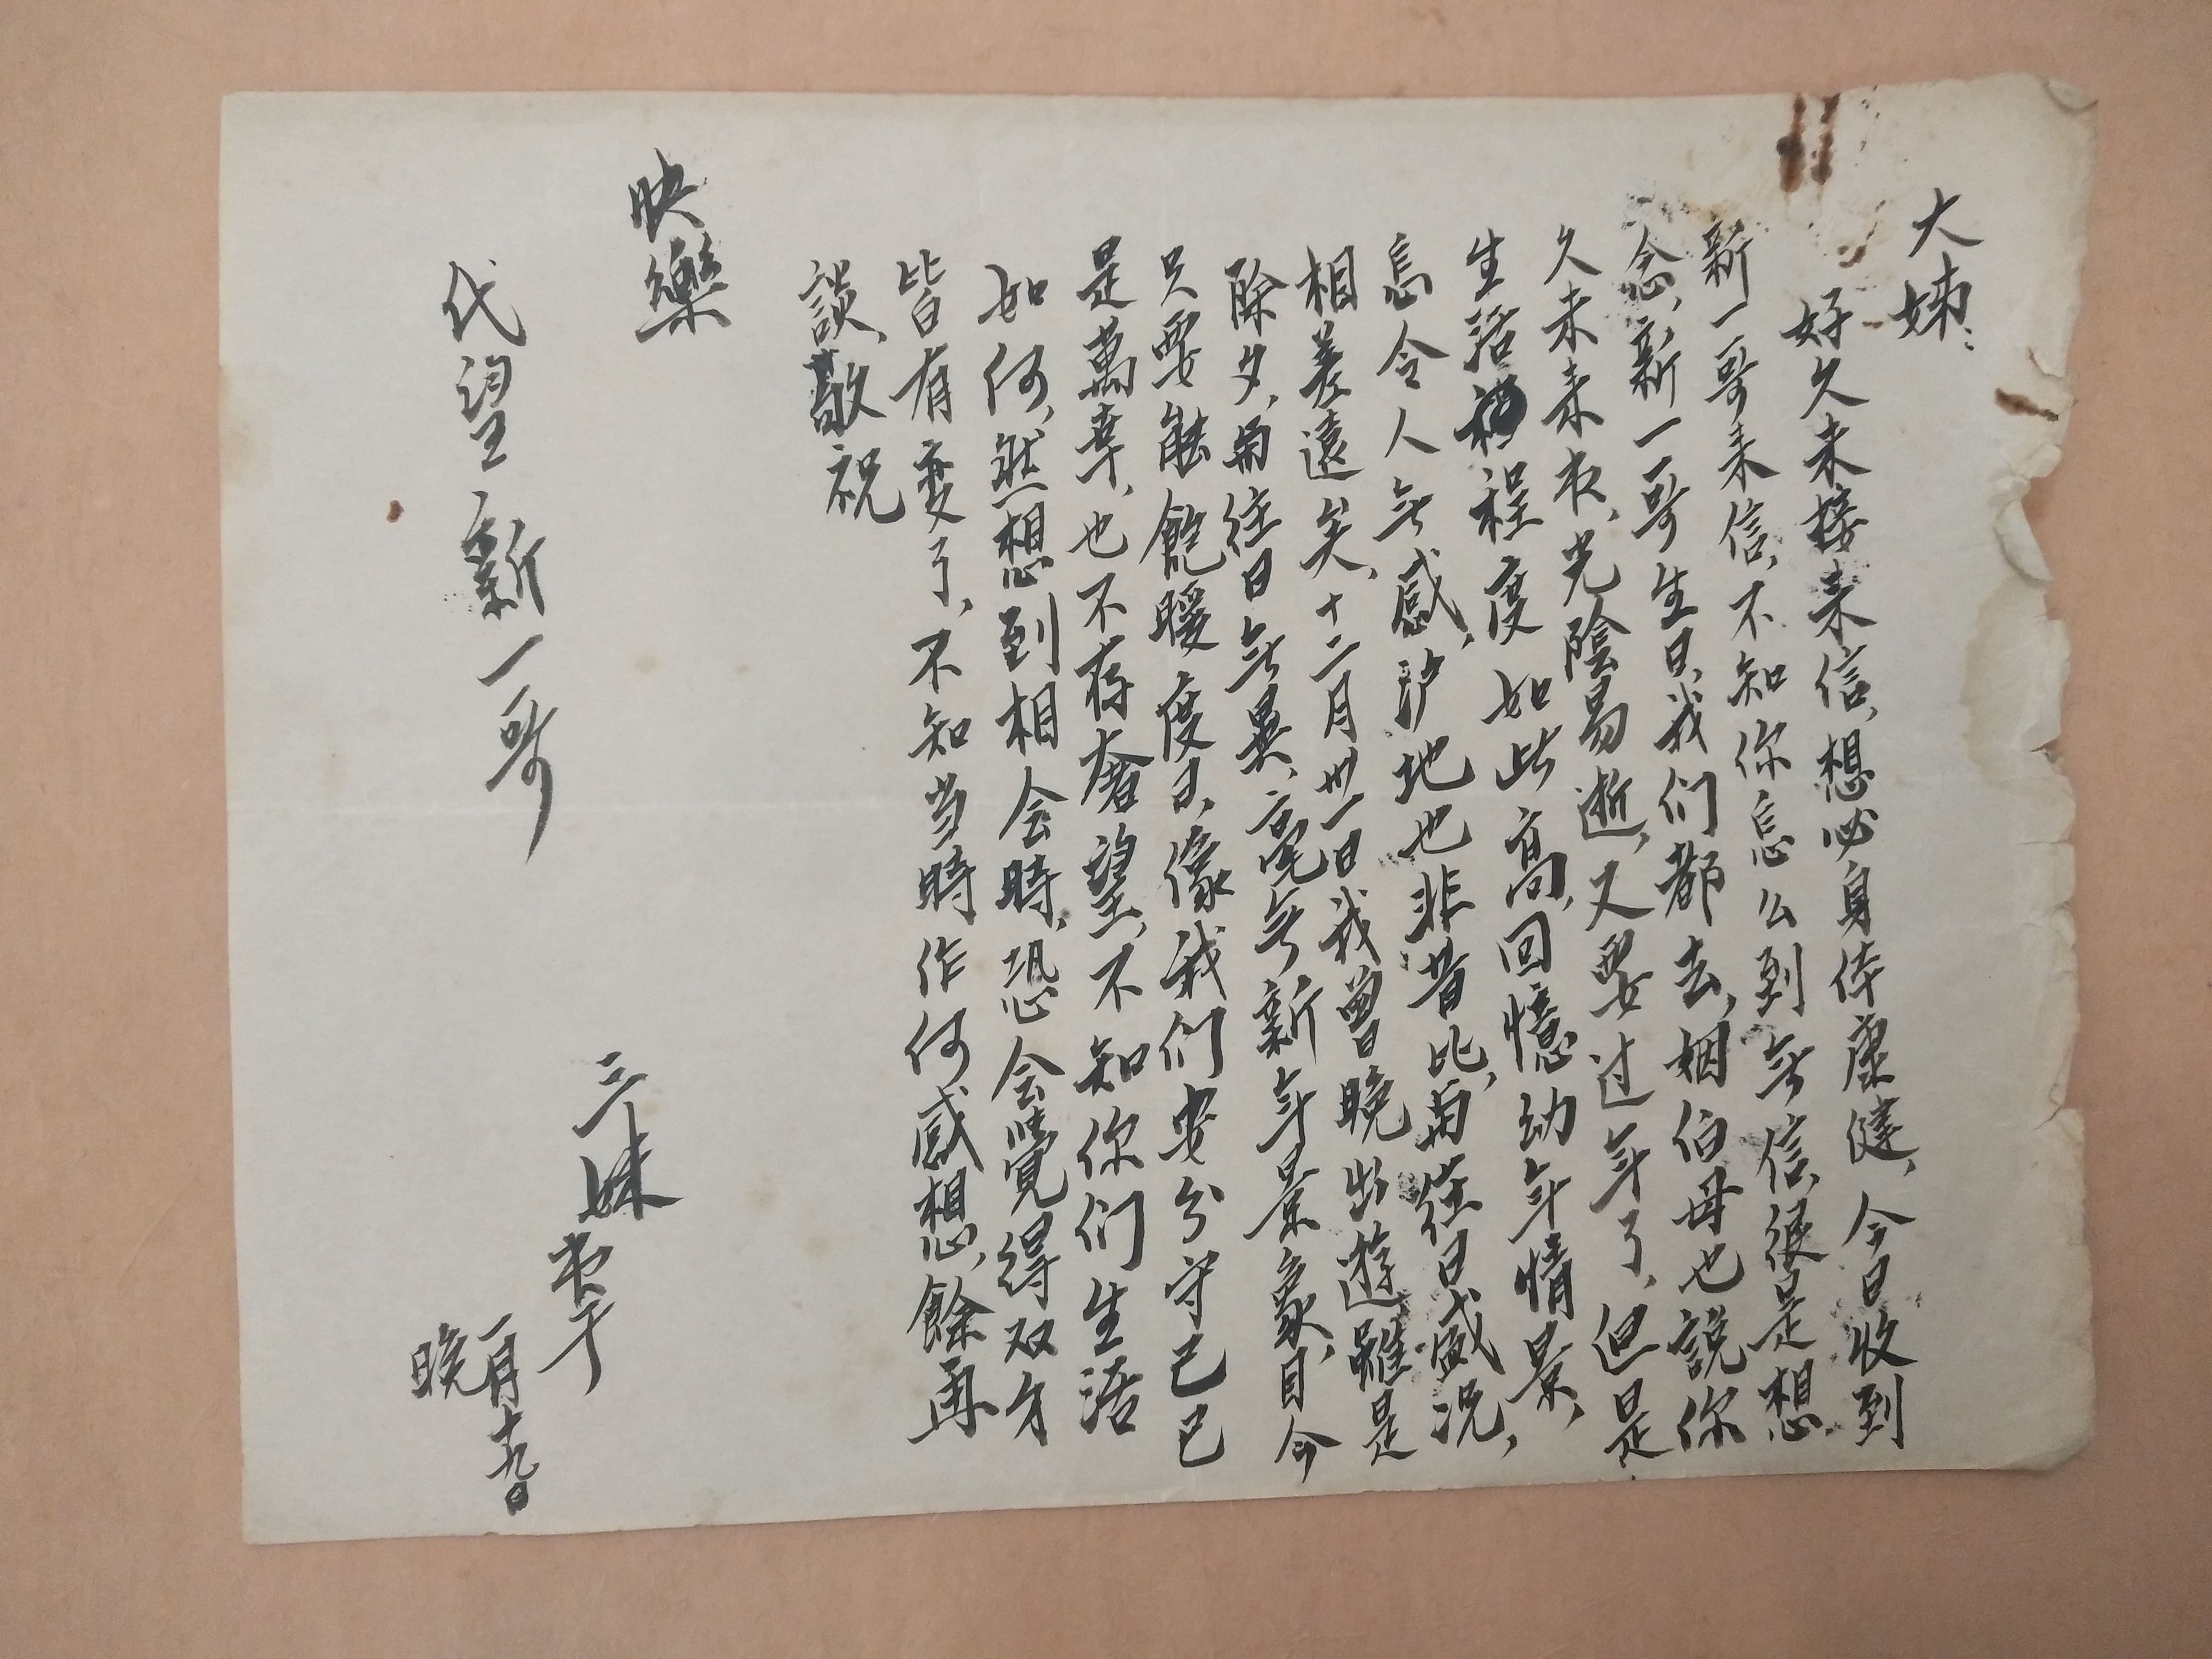 大姊：
好久未接来信，想必身体康健，今日收到
新一哥来信，不知你怎么到无信，很是想
念，新一哥生日，我们都去，姻伯母也説你
久未来，光陰易逝，又要过年了，但是
生活程度如此高，回憶幼年情景，
怎令人无感，沪地也非昔比，与往日盛况，
相差遠矣，十二月卅一日我曾晚出遊，雖是
除夕，与往日无異，毫无新年景象，目今
只要能飽暖度日，像我们安分守己已
是萬幸，也不存奢望，不知你们生活
如何，然想到相会時，恐会覺得双方
皆有变了，不知当時作何感想，餘再
談，敬祝
快樂
三妹
一月十九日
晚
代望新一哥